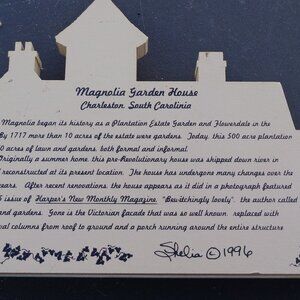 Magnolia Garden House
Charleston, South Carolinia
Magnolia began its history as a Plantation Estate Garden and Flowerdale in the
By 1717 more than 10 acres of the estate were gardens. Today, this 500 acre plantation
0 acres of lawn and gardens, both formal and informal.
Originally a summer home, this pre-Revolutionary house was shipped down river in
reconstructed at its present location. The house has undergone many changes over the
years. After recent renovations, the house appears as it did in a photograph featured
5 issue of Harper's New Monthly Magazine. "Bewitchingly lovely", the author called
and gardens. Gone is the Victorian facade that was so well known, replaced with
al columns from roof to ground and a porch running around the entire structure
Shelia © 1996